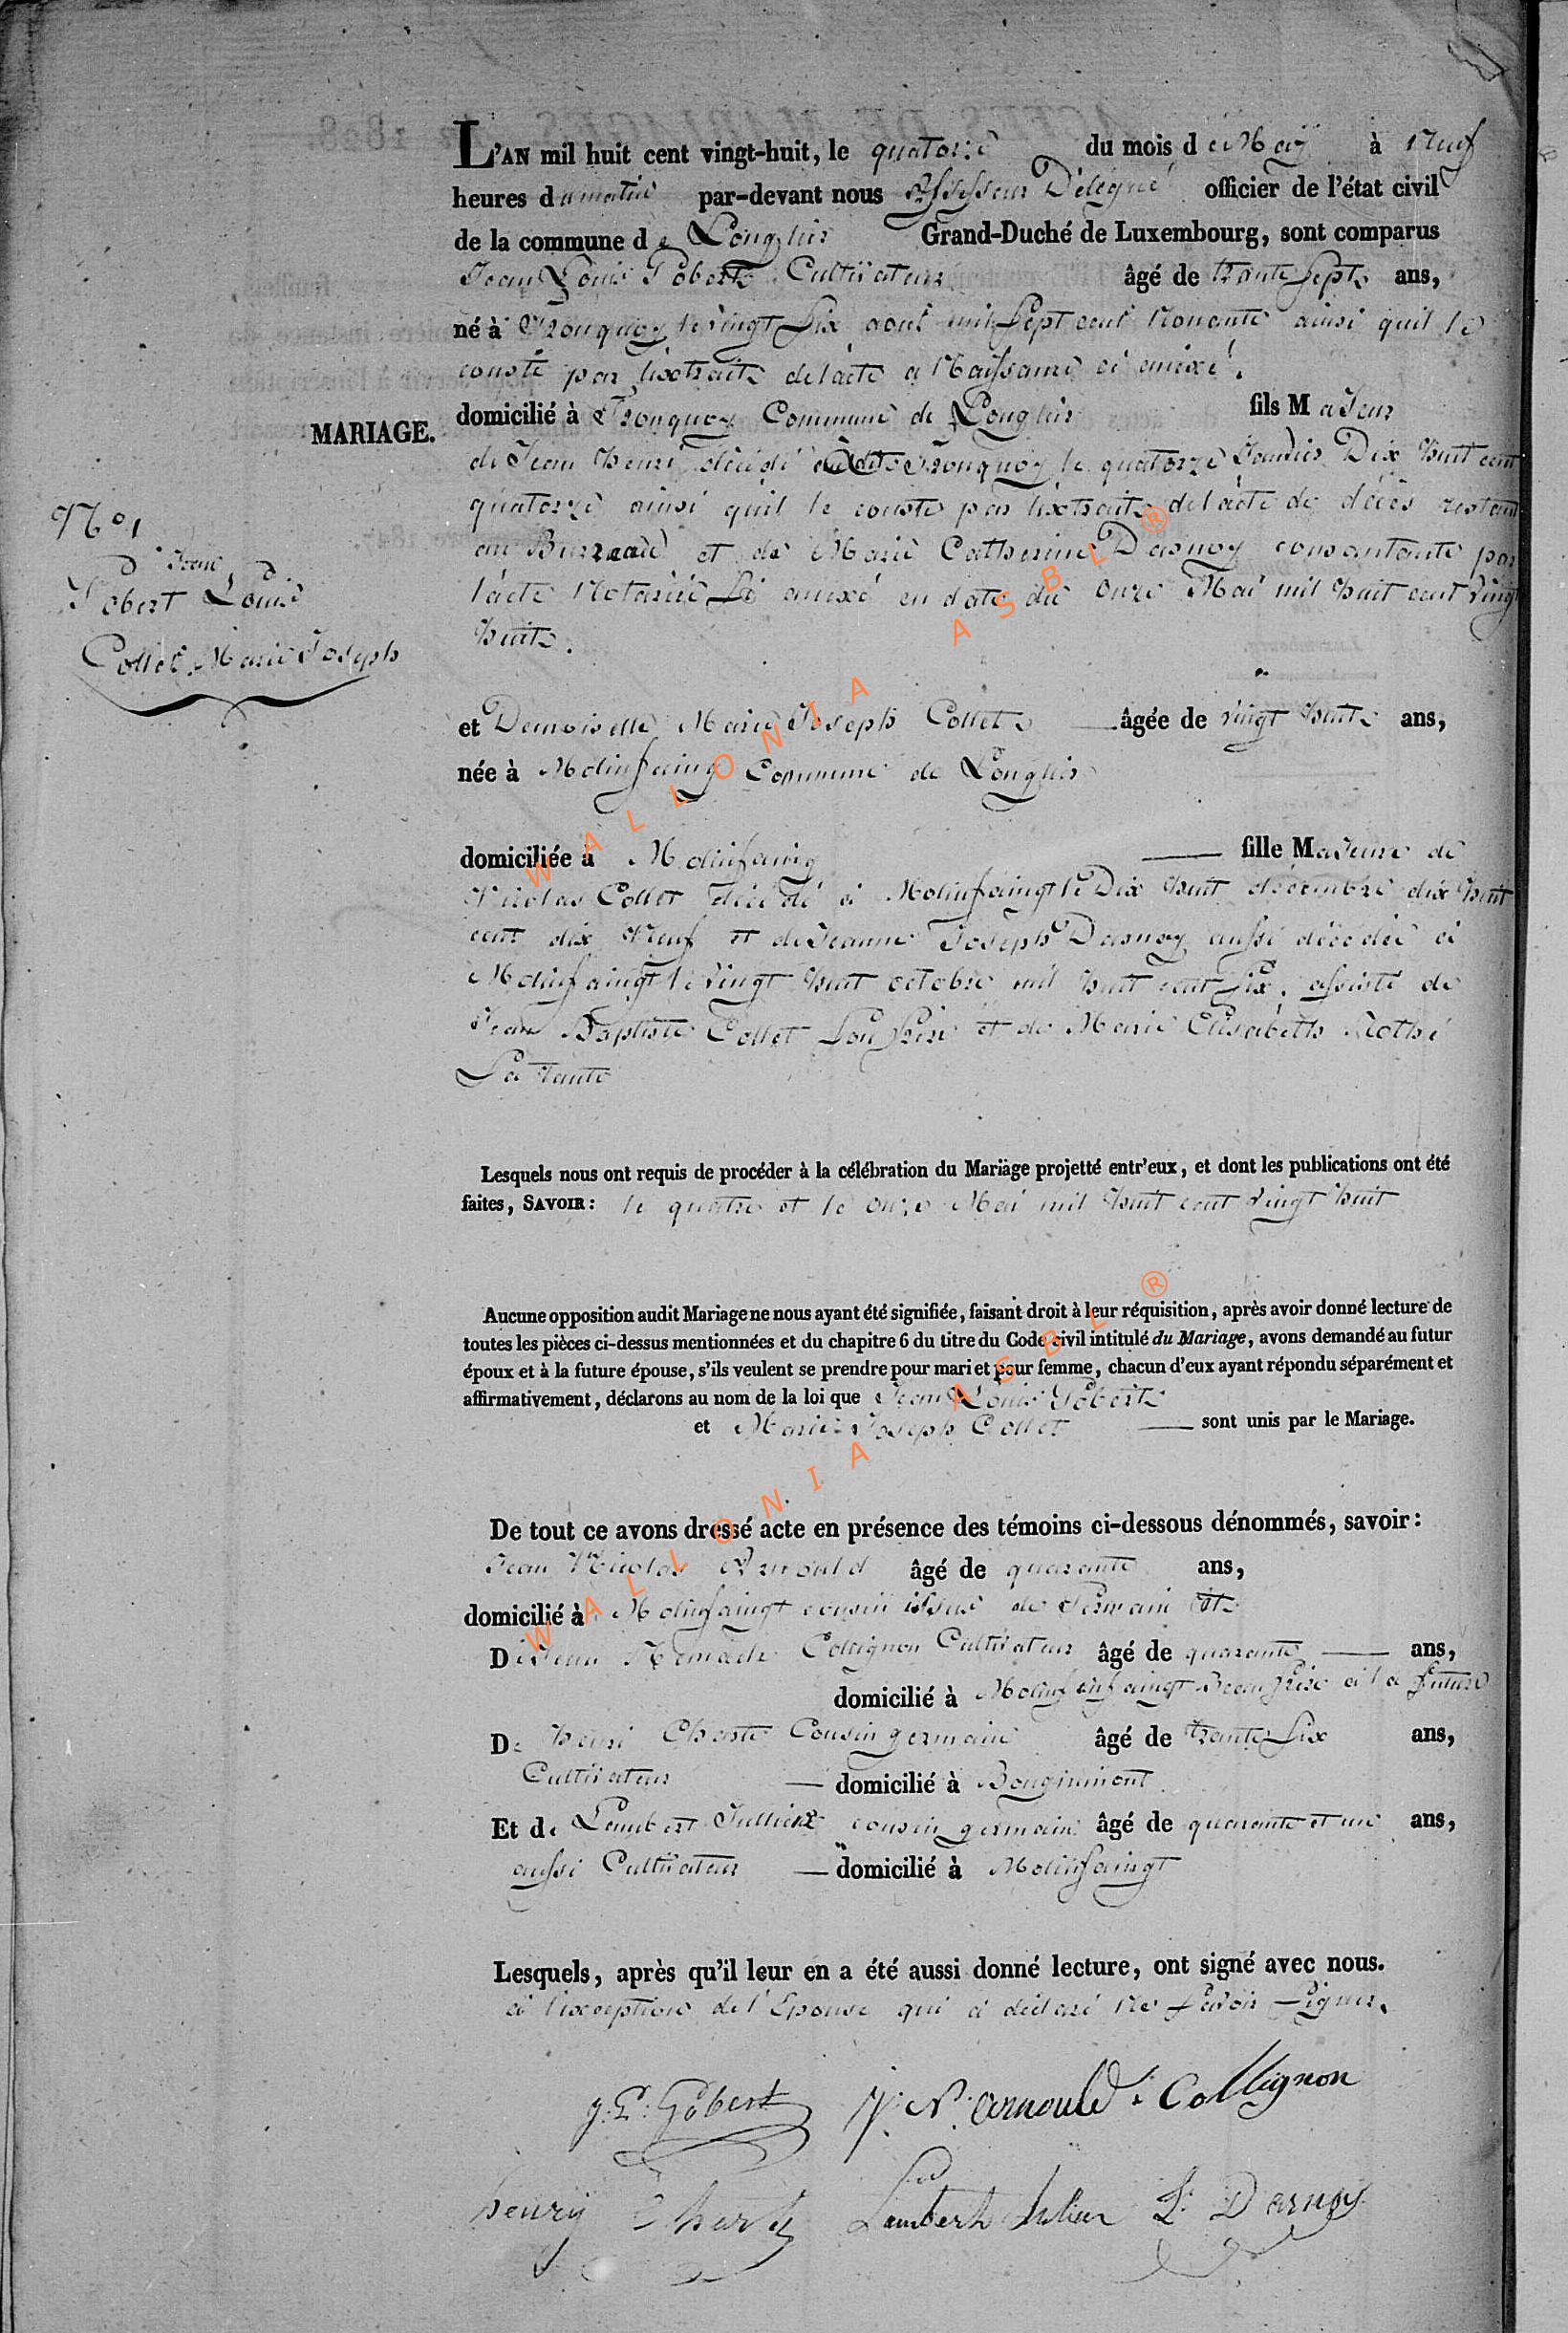 L'AN mil huit cent vingt-huit, le quatorze du mois de May à Neuf
heures du matin par-devant nous Assesseur Délégué officier de l'état civil
de la commune de Longlier Grand-Duché de Luxembourg, sont comparus
Jean Louis Gobert Cultivateur âgé de trente Sept ans,
né à Tronquoy le vingt Six aout mil Sept cent Nonante ainsi quil le
conste par lextrait delacte a Naissance ci annexé.
domicilié à Tronquoy Commune de Longlier fils Majeur
de Jean henri décédé audit Tronquoy le quatorze Janvier Dix huit cent
MARIAGE.
quatorze ainsi quil le conste par lextrait delacte de décès restant
au Bureau et de Marie Catherine Dasnoy consantante par
lacte Notarié Ci annexé en date du onze Mai mil huit cent vingt
huit.
No 1
Jean
Gobert Louis
Collet Marie Joseph
et Demoiselle Marie Joseph Collet âgée de vingt huit ans,
née à Molinfaing Commune de Longlier
domiciliée à Molinfaing fille Majeure de
Nicolas Collet décédé à Molinfaingt le Dix huit décembre dix huit
cent dix Neuf et de Jeanne Joseph Dasnoy aussi décédée à
Molinfaingt le vingt huit octobre mil huit cent Six. assisté de
Jean Baptiste Collet Son frere et de Marie Elisabeth
Sa tante
Lesquels nous ont requis de procéder à la célébration du Mariage projetté entr'eux, et dont les publications ont été
faites, SAVOIR: le quatre et le onze Mai mil huit cent vingt huit
Aucune opposition audit Mariage ne nous ayant été signifiée, faisant droit à leur réquisition, après avoir donné lecture de
toutes les pièces ci-dessus mentionnées et du chapitre 6 du titre du Code civil intitulé du Mariage, avons demandé au futur
époux et à la future épouse, s'ils veulent se prendre pour mari et pour femme, chacun d'eux ayant répondu séparément et
affirmativement, déclarons au nom de la loi que Jean Louis Gobert
et Marie Joseph Collet sont unis par le Mariage.
De tout ce avons dressé acte en présence des témoins ci-dessous dénommés, savoir:
Jean Nicolas Arnould âgé de quarante ans,
domicilié à Molinfaingt cousin issue de Germain
De Jean Collignon Cultivateur âgé de quarante ans,
domicilié à Molinfaingt Beau frere à la future
De henri Cousin germain âgé de trente Six ans,
Cultivateur domicilié à Bouginmont
Et de Lambert Jullien cousin germain âgé de quarante et un ans,
aussi Cultivateur domicilié à Molinfaingt
Lesquels, après qu'il leur en a été aussi donné lecture, ont signé avec nous.
à l'exception de l'Epouse qui a déclaré Ne Savoir Signer.
J: L: Gobert J: N: arnould Collignon
henry Lambert Julien L: Dasnoy
WALLONIA ASBL ®
WALLONIA ASBL ®